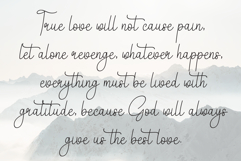 True love will not cause pain,
let alone revenge, whatever happens,
everything must be lived with
gratitude, because God will always
give us the best love.